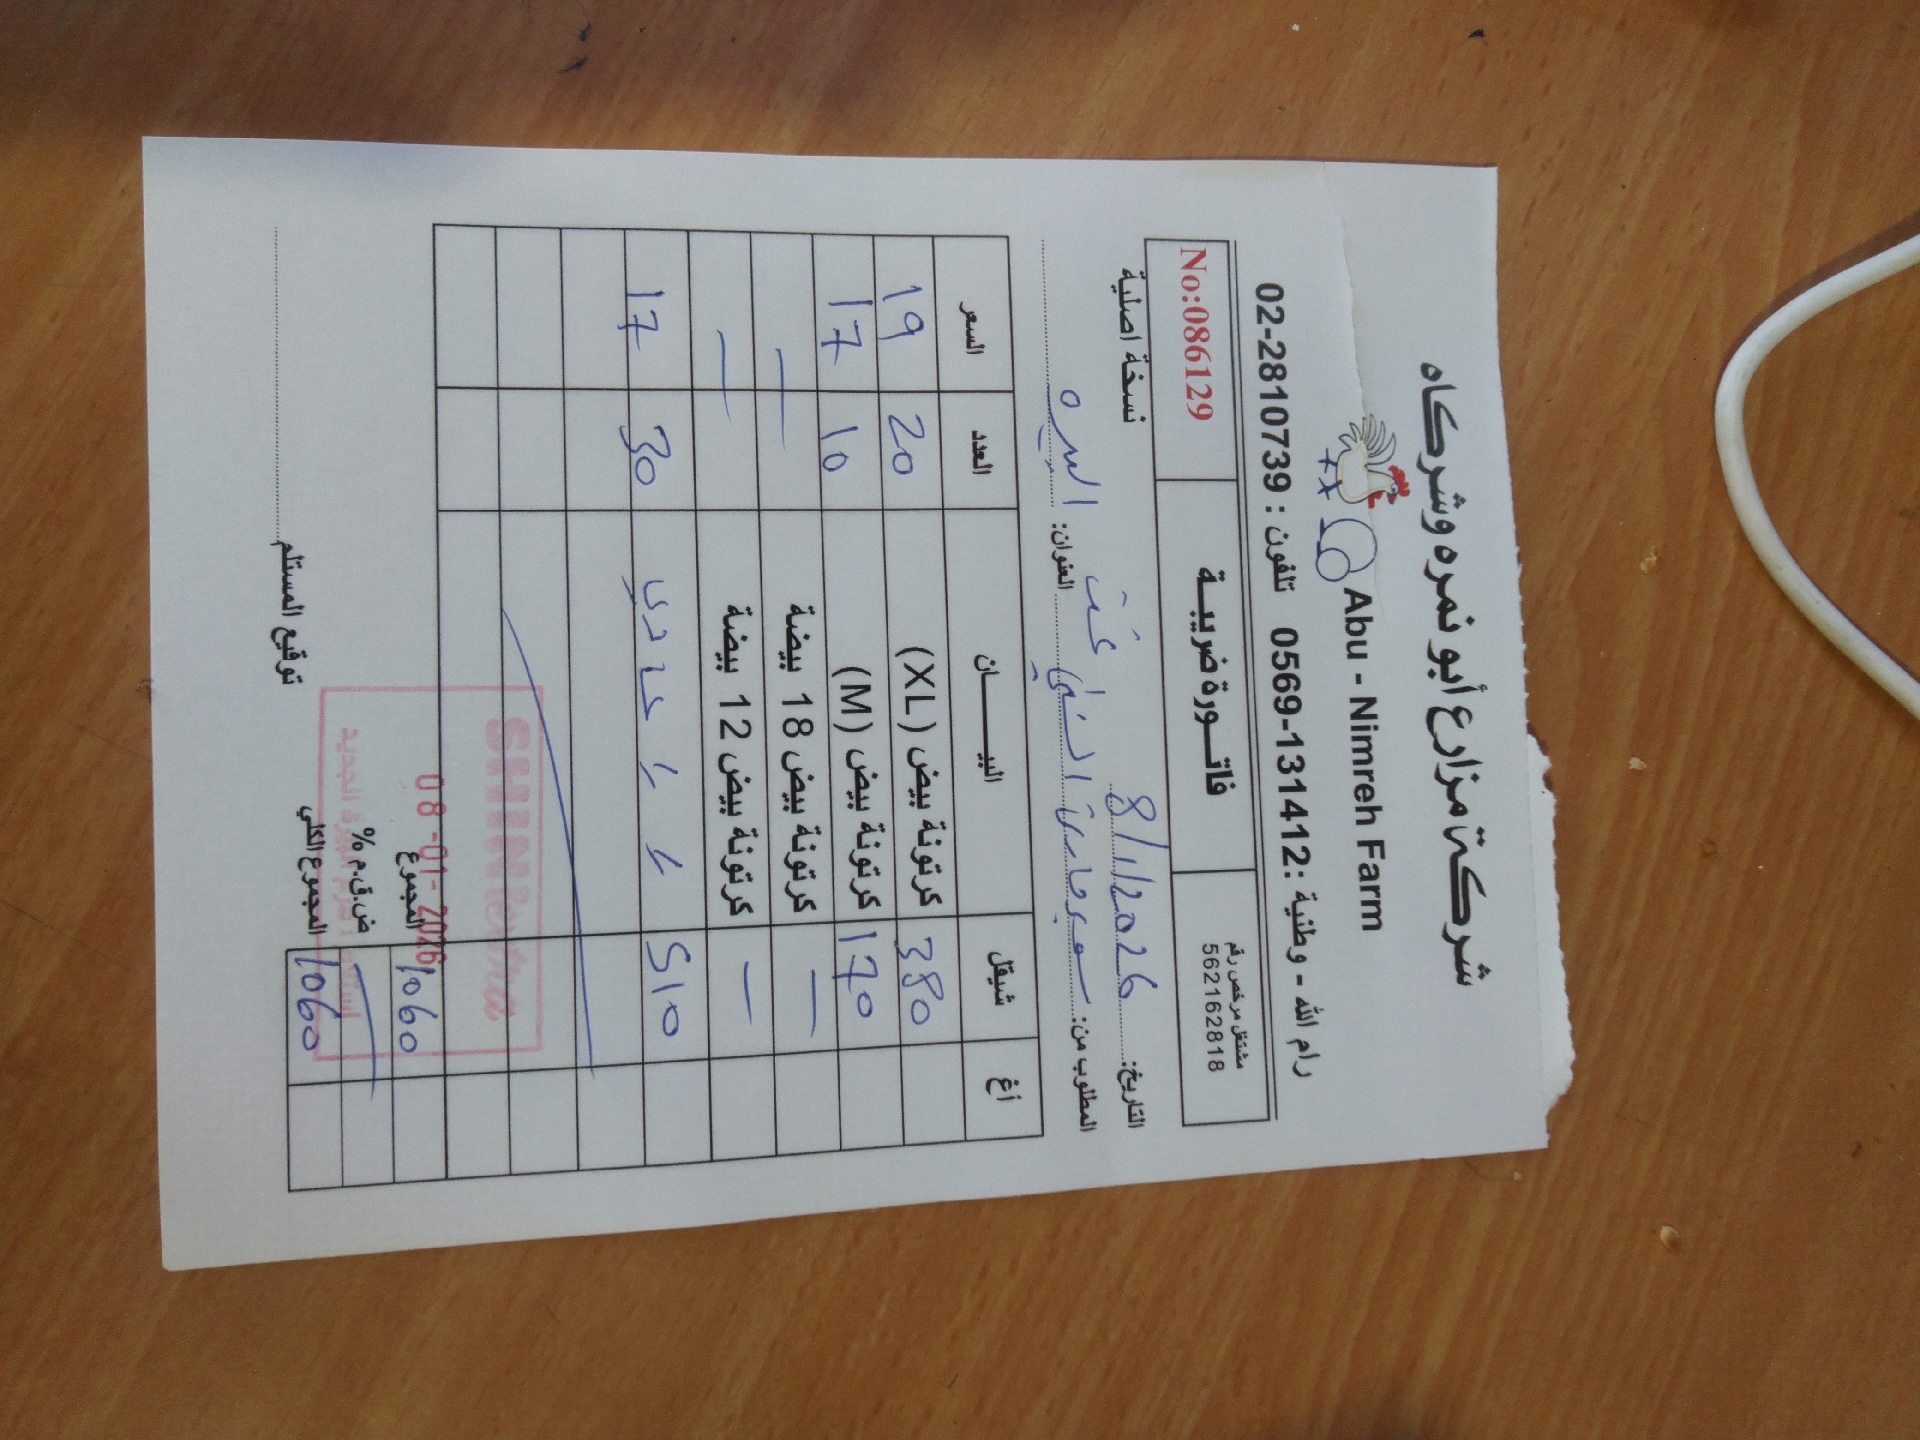 شركة مزارع أبو نمره وشركاه
Abu - Nimreh Farm
رام الله - وطنية : 0569-131412 تلفون : 02-2810739
مشتغل مرخص رقم 562162818
فاتـورة ضريبـة
No:086129
التاريخ: 8/1/2026 نسخة اصلية
المطلوب من: سوبرماركت العنوان: البيره
شيقل أغ البيـــــان العدد السعر
380 كرتونة بيض (XL) 20 19
170 كرتونة بيض (M) 10 17
— كرتونة بيض 18 بيضة —
— كرتونة بيض 12 بيضة —
510 عادي 30 17
1060 المجموع
ض.ق.م %
1060 المجموع الكلي
SHINIextra
08-01-2026
توقيع المستلم